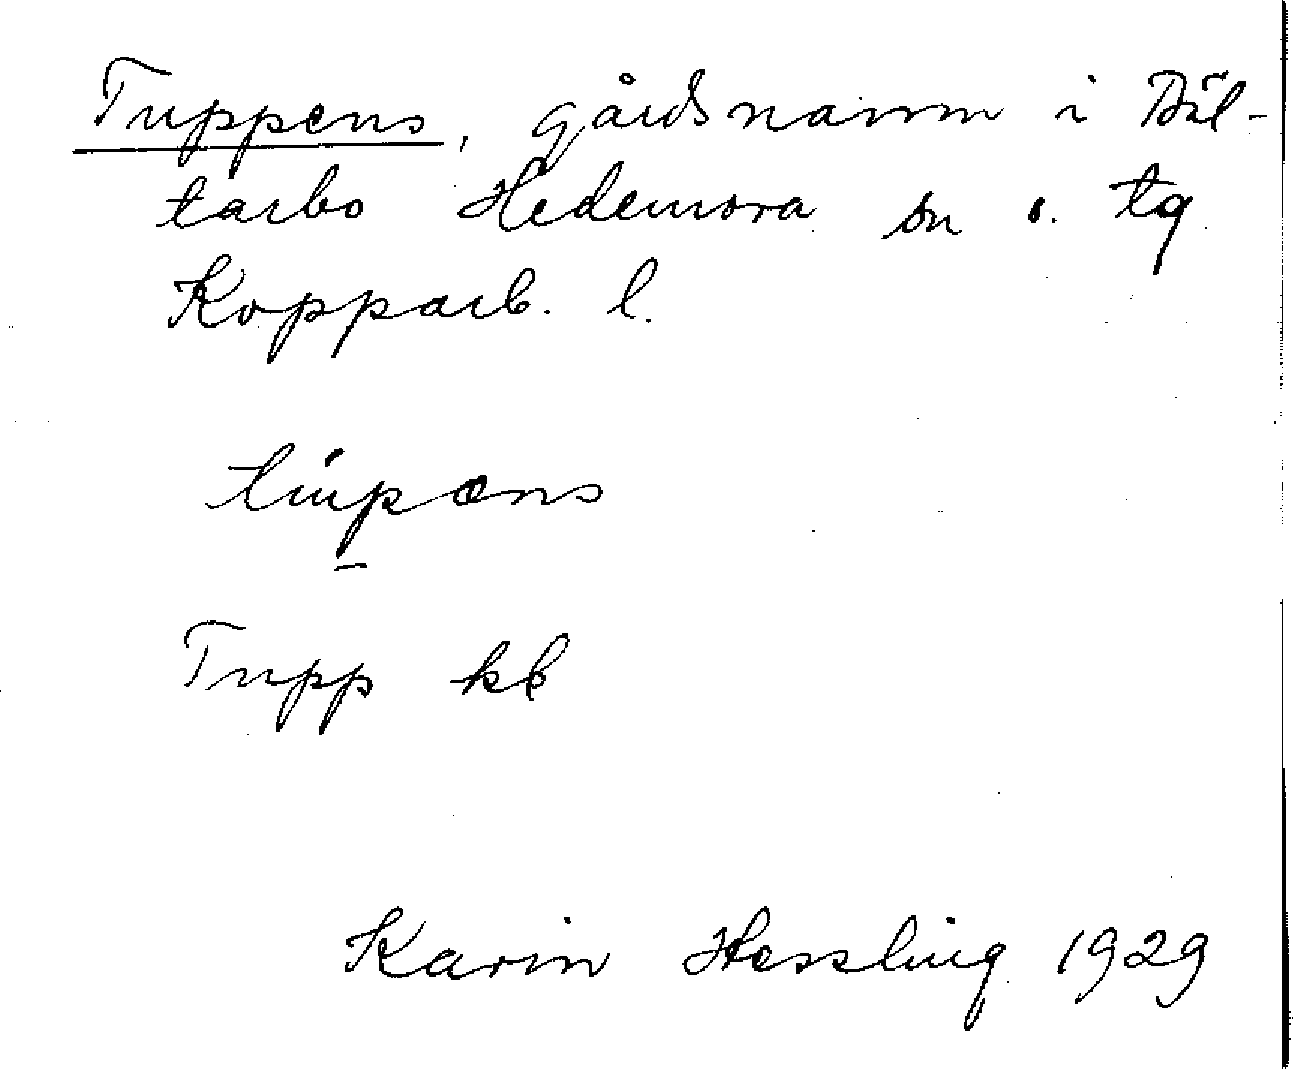 Tuppens, gårdsnamn i Bäl-
tarbo Hedemora sn o. tg
Kopparb. l.
túpæns
Tupp kb
Karin Hessling 1929